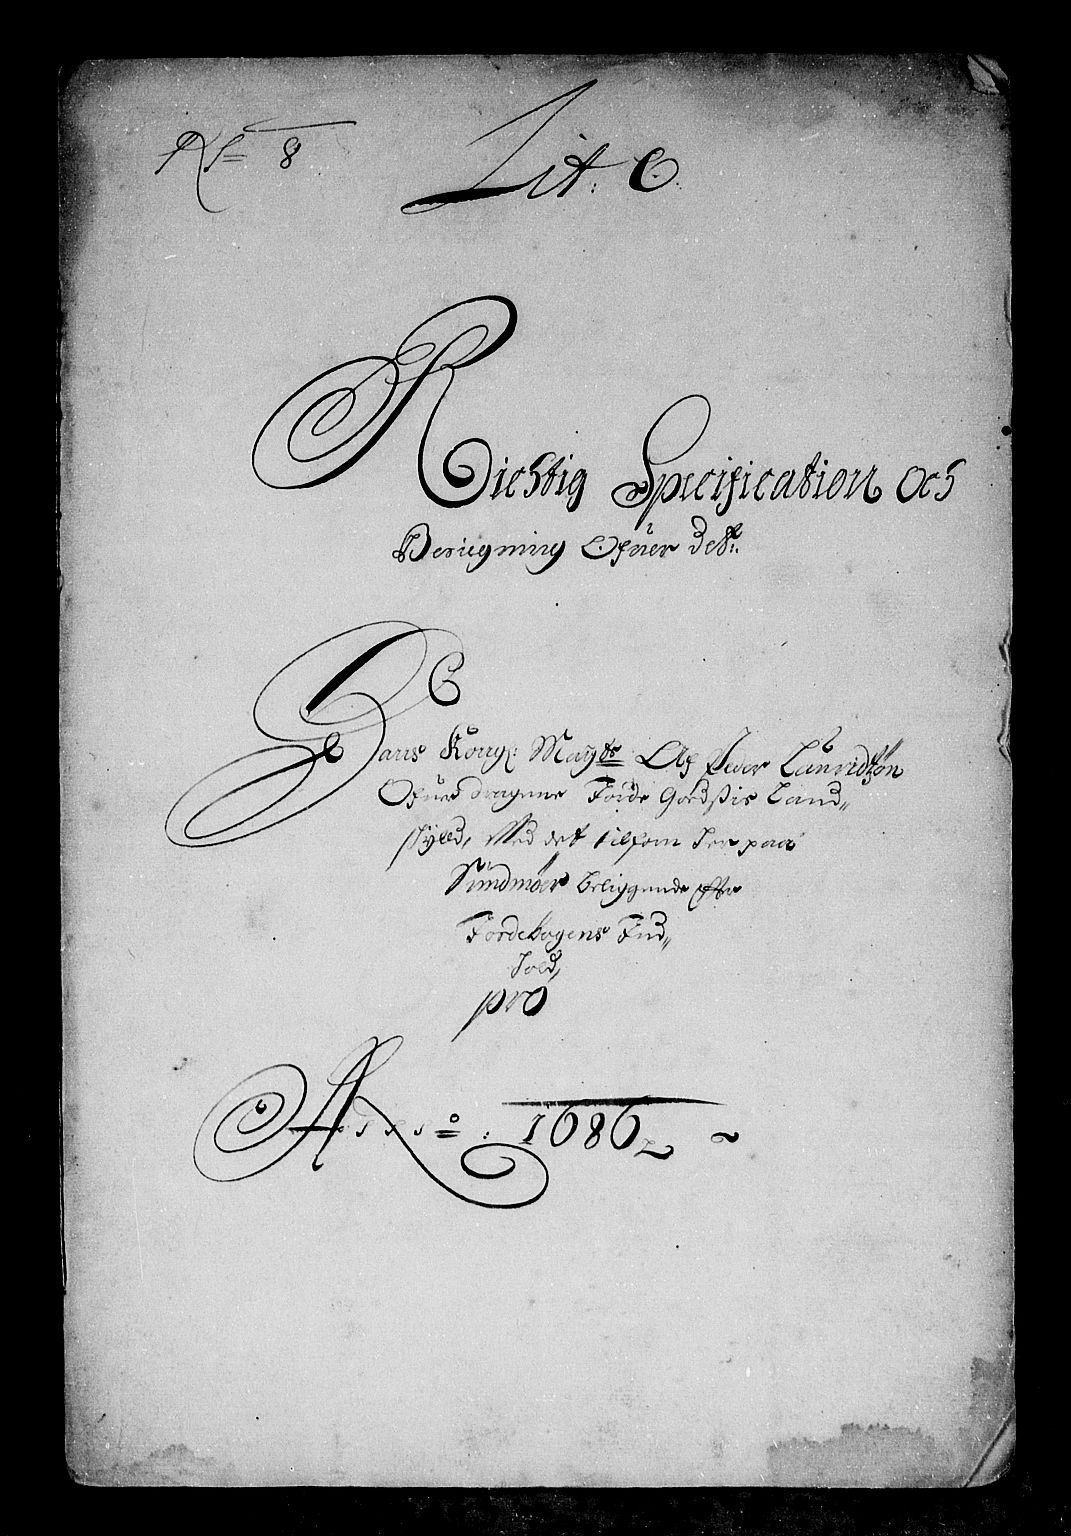 Nº 8
Lit: C.
Richtig Specification Och
Beregning Ofuer det
Hans Kongl: Mayts Af Peder Lauridtzøn
Ofuerdragne Jorde Godtzis Land„
schyld, Med det tilfom paa
Sundmøer beliggende effter
Jordebogens Ind„
hold,
pro
Anno: 1686